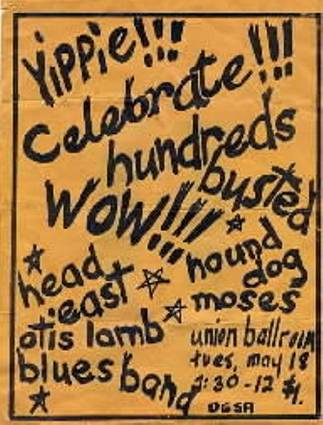 Yippie!!!
Celebrate!!!
hundreds
busted
WOW!!!
head
east
otis lamb
blues band
hound
dog
moses
union ballroom
tues, may 18
:30-12 $1.
OGSA